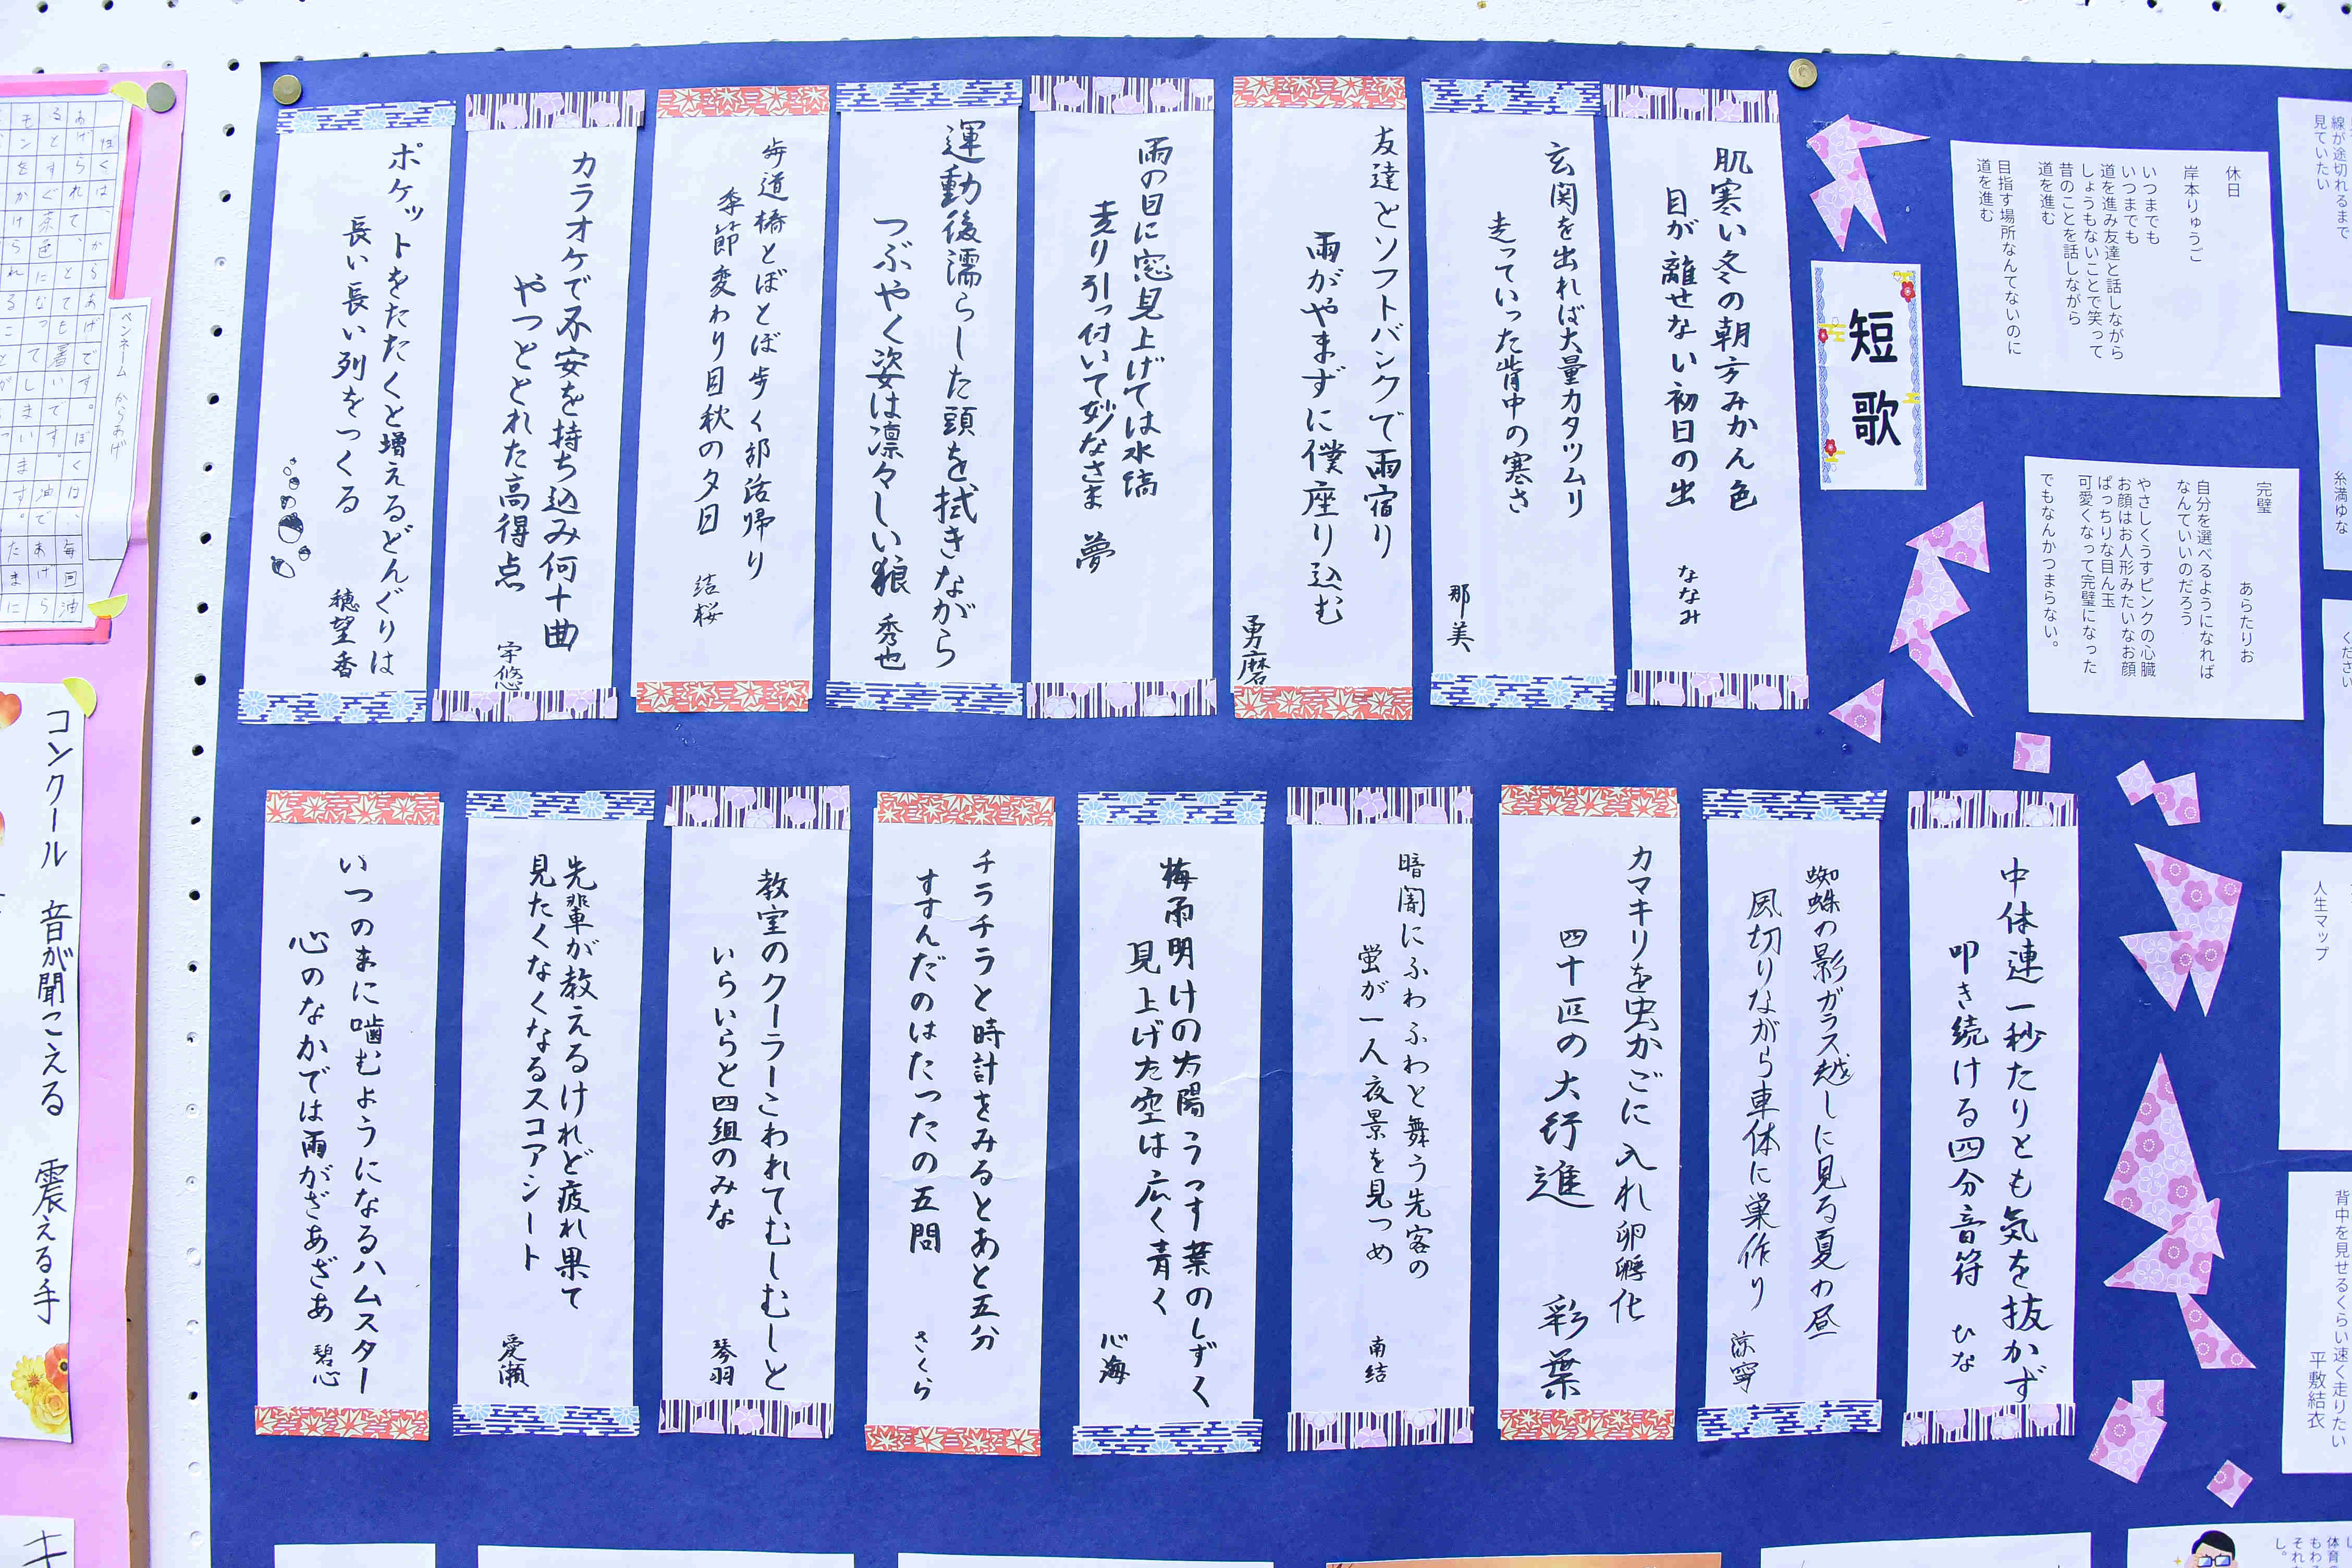 短歌
肌寒い冬の朝方みかん色
目が離せない初日の出
ななみ
玄関を出れば大量カタツムリ
走っていった背中の寒さ
那美
友達とソフトバンクで雨宿り
雨がやまずに僕座り込む
勇磨
雨の日に窓見上げては水縞
走り引っ付いて妙なさま
夢
運動後濡らした頭を拭きながら
つぶやく姿は凛々しい狼
秀也
歩道橋とぼとぼ歩く部活帰り
季節変わり目秋の夕日
結桜
カラオケで不安を持ち込み何十曲
やっととれた高得点
宇悠
ポケットをたたくと増えるどんぐりは
長い長い列をつくる
穂望香
中体連一秒たりとも気を抜かず
叩き続ける四分音符
ひな
蜘蛛の影ガラス越しに見る夏の昼
風切りながら車体に巣作り
涼寧
カマキリを虫かごに入れ卵孵化
四十匹の大行進
彩葉
暗闇にふわふわと舞う先客の
蛍が一人夜景を見つめ
南結
梅雨明けの太陽うつす葉のしずく
見上げた空は広く青く
心海
チラチラと時計をみるとあと五分
すすんだのはたったの五問
さくら
教室のクーラーこわれてむしむしと
いらいらと四組のみな
琴羽
先輩が教えるけれど疲れ果て
見たくなくなるスコアシート
愛瀬
いつのまに噛むようになるハムスター
心のなかでは雨がざあざあ
碧心
休日
岸本りゅうご
いつまでも
いつまでも
道を進み友達と話しながら
しょうもないことで笑って
昔のことを話しながら
道を進む
目指す場所なんてないのに
道を進む
完璧
あらたりお
自分を選べるようになれば
なんていいのだろう
やさしくうすピンクの心臓
お顔はお人形みたいなお顔
ぱっちりな目ん玉
可愛くなって完璧になった
でもなんかつまらない。
線が途切れるまで
見ていたい
糸満ゆな
ください
人生マップ
背中を見せるくらい速く走りたい
平敷結衣
ペンネーム からあげ
コンクール 音が聞こえる 震える手